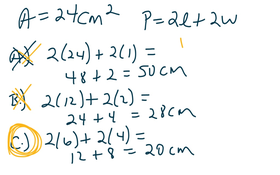 A = 24cm² P = 2l + 2w
A.) 2(24) + 2(1) =
48 + 2 = 50 cm
B.) 2(12) + 2(2) =
24 + 4 = 28 cm
C.) 2(6) + 2(4) =
12 + 8 = 20 cm